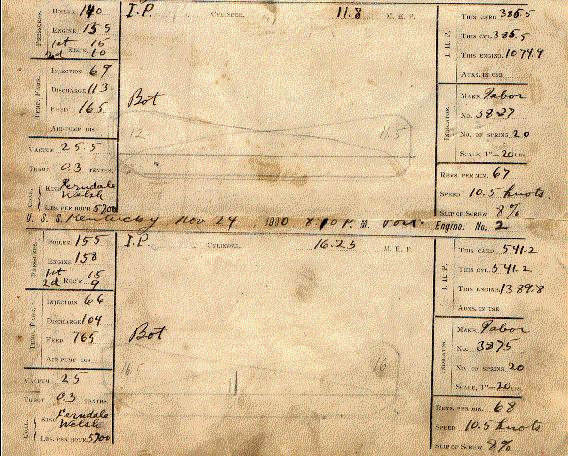 BOILER 140 I.P. CYLINDER. 11.8 M. E. P. THIS CARD 385.5
ENGINE 135 THIS CYL. 385.5
1st REC'R. 15 THIS ENGINE. 1074.9
2nd 10 AUXS. IN USE
PRESSURES. I. H. P.
INJECTION 69
DISCHARGE 113 MAKE Tabor
FEED 165 Bot No. 3827
AIR-PUMP DIS. 12 11.5 NO. OF SPRING 20
TEMP. FAHR. INDICATOR.
VACUUM 25.5 SCALE, 1"=20 LBS.
THROT 03 TENTHS. REVS. PER MIN. 67
KIND Ferndale Welsh SPEED 10.5 knots
COAL. LBS. PER HOUR 5700 SLIP OF SCREW 8%
U. S. S. Kentucky Nov 24, 1900 P. M. Port Engine. No. 2
BOILER 155 I.P. CYLINDER. 16.25 M. E. P. THIS CARD 541.2
ENGINE 150 THIS CYL. 541.2
1st REC'R. 15 THIS ENGINE. 1389.8
2nd 9 AUXS. IN USE
PRESSURES. I. H. P.
INJECTION 66
DISCHARGE 104 MAKE Tabor
FEED 165 Bot No. 3875
AIR-PUMP DIS. 16 16 NO. OF SPRING 20
TEMP. FAHR. INDICATOR
VACUUM 25 SCALE, 1"=20 LBS.
THROT 03 TENTHS REVS. PER MIN. 68
KIND Ferndale Welsh SPEED 10.5 knots
COAL. LBS. PER HOUR 5700 SLIP OF SCREW 8%